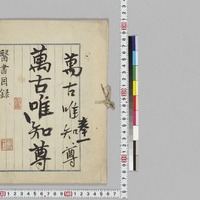 萬古唯知尊
萬古唯知尊
醫書目録